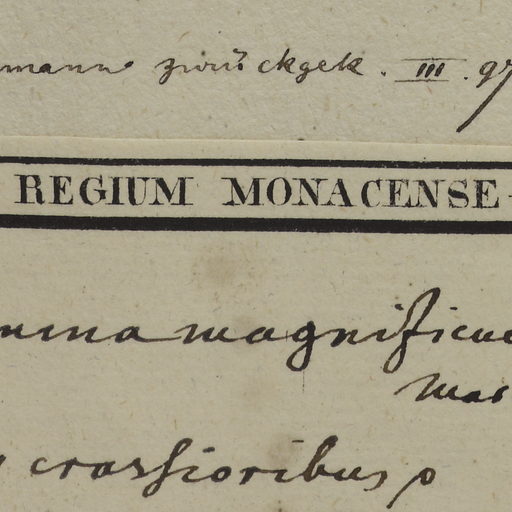 mann zurückgek. III. 97
REGIUM MONACENSE
magnificu
Mar
crassioribus